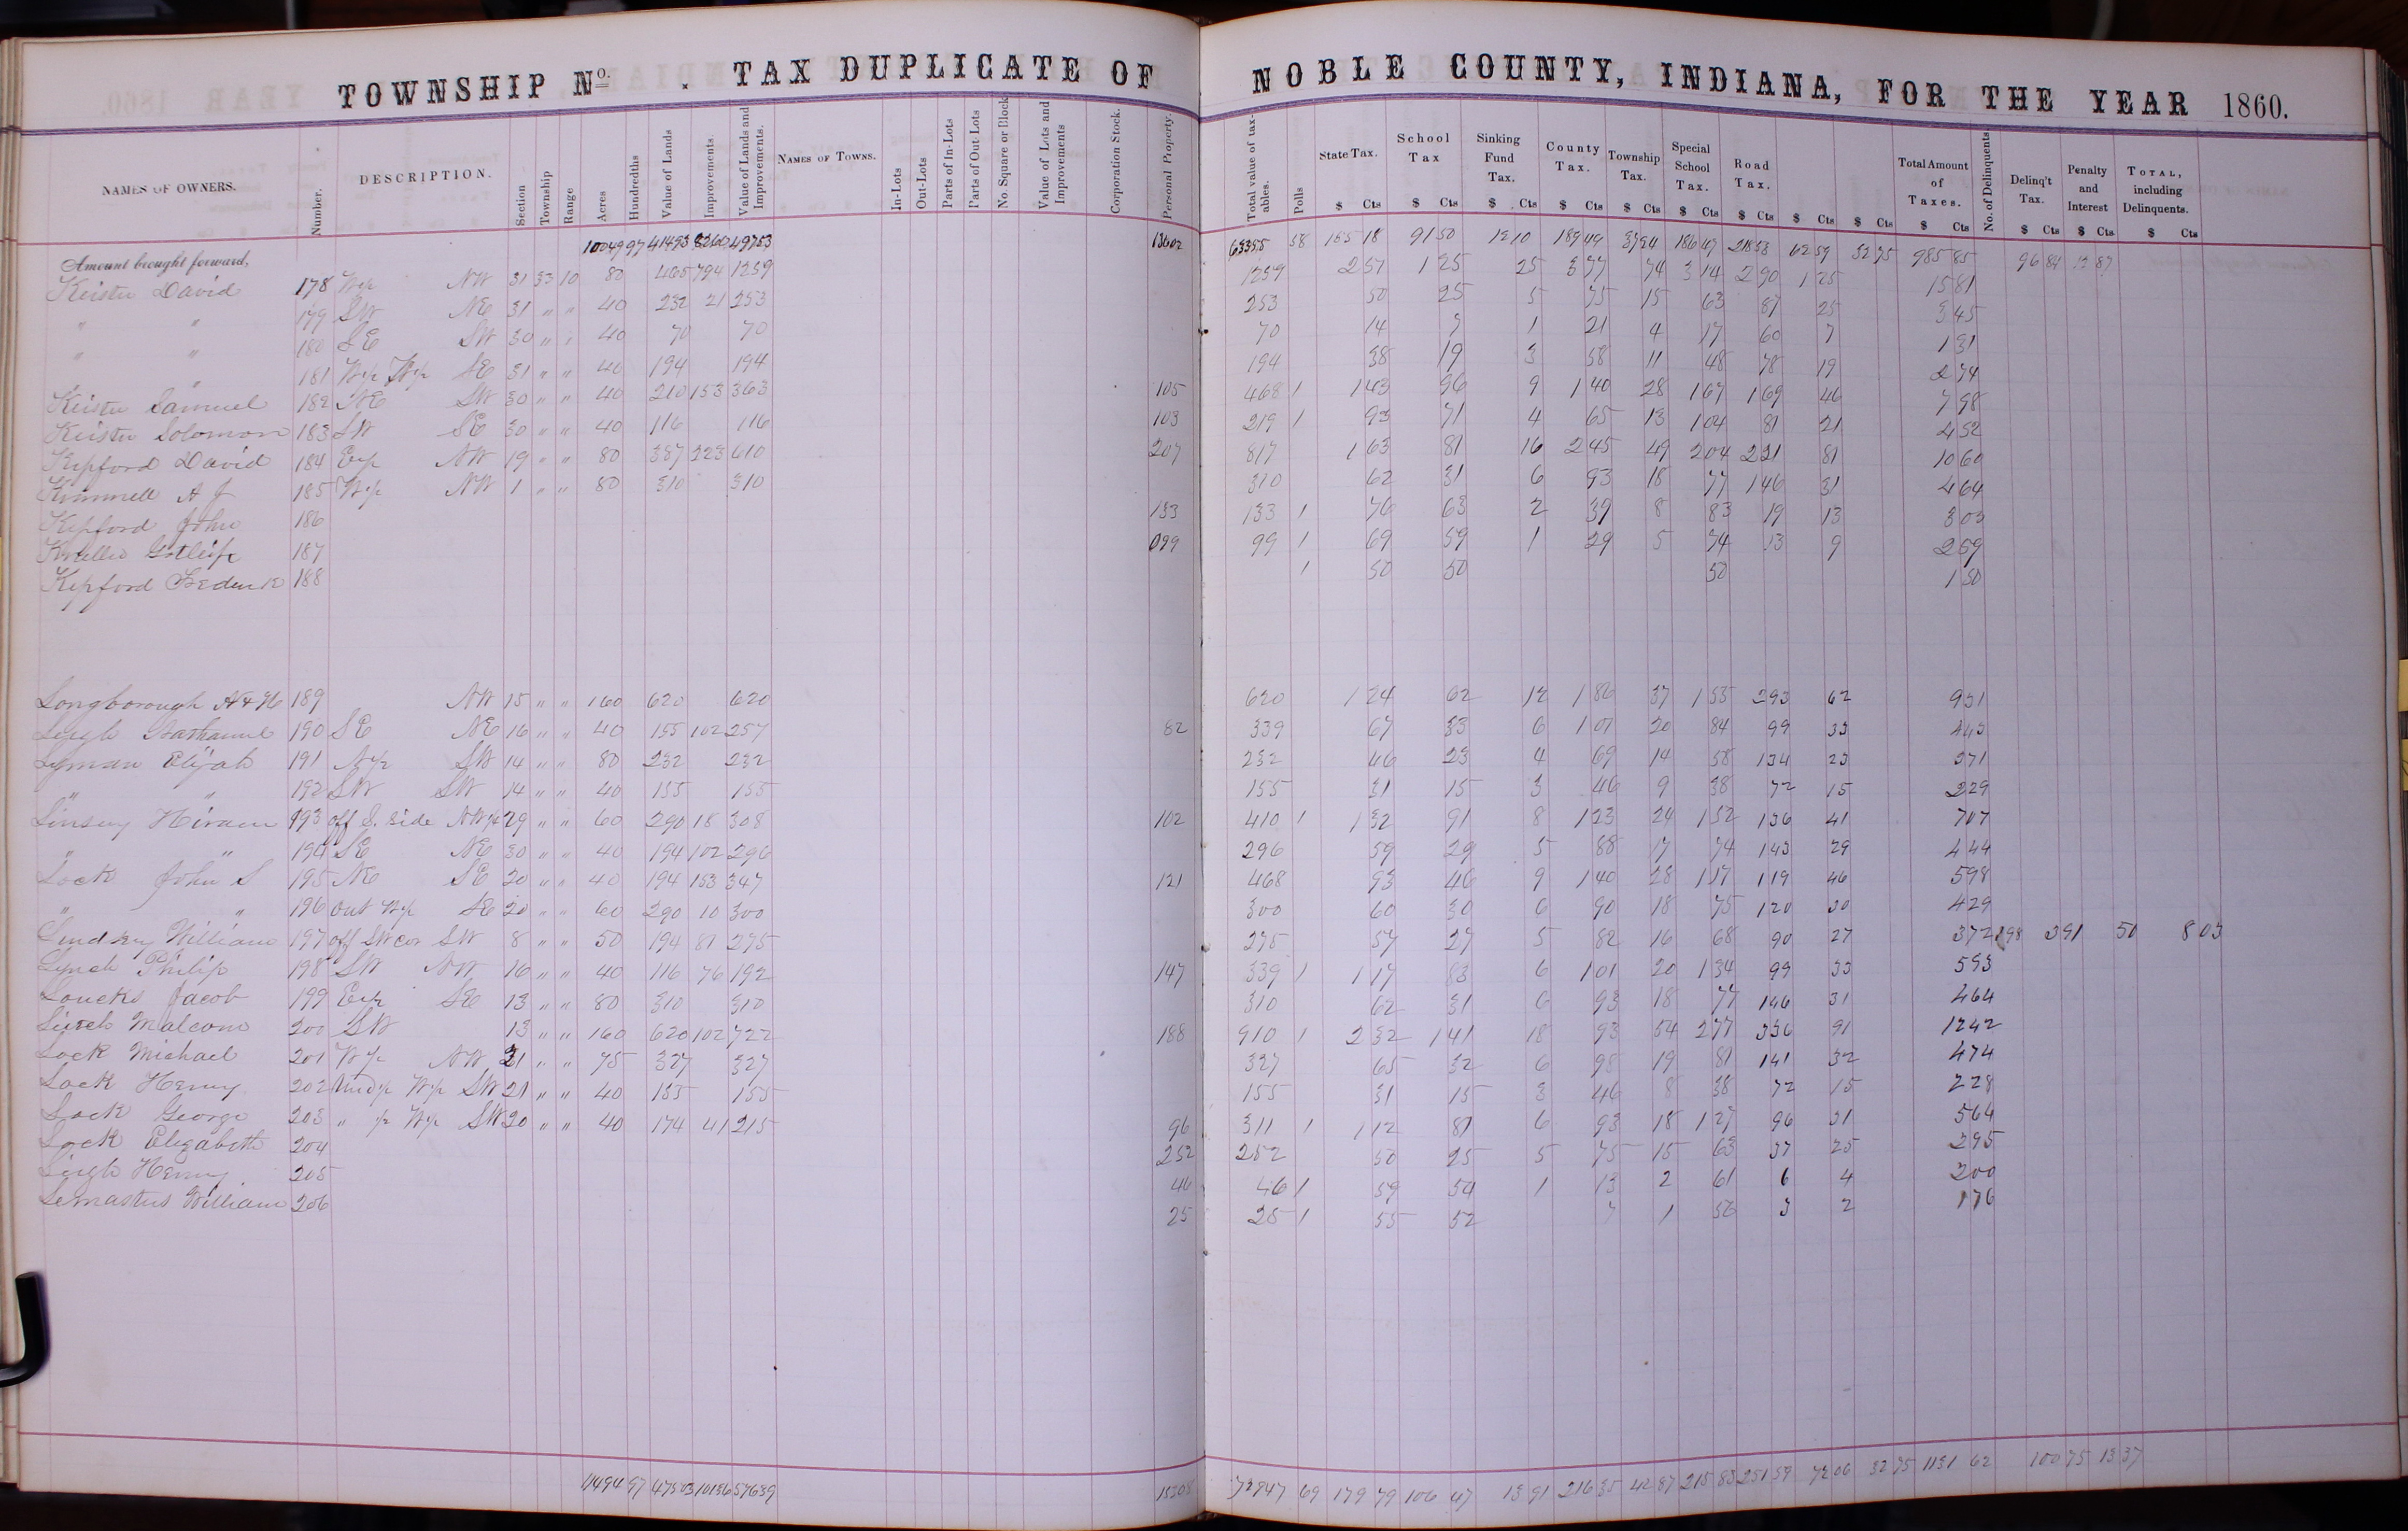 TOWNSHIP No. . TAX DUPLICATE OF NOBLE COUNTY, INDIANA, FOR THE YEAR 1860.
NAMES OF OWNERS. Number. DESCRIPTION. Section Township Range Acres Hundredths Value of Lands Improvements. Value of Lands and Improvements. NAMES OF TOWNS. In-Lots Out-Lots Parts of In-Lots Parts of Out-Lots No. Square or Block Value of Lots and Improvements Corporation Stock. Personal Property. Total value of taxables. Polls State Tax. School Tax Sinking Fund Tax. County Tax. Township Tax. Special School Tax. Road Tax. Total Amount of Taxes. No. of Delinquents. Delinq't Tax. Penalty and Interest TOTAL, including Delinquents.
$ Cts $ Cts $ Cts $ Cts $ Cts $ Cts $ Cts $ Cts $ Cts $ Cts $ Cts $ Cts $ Cts
Amount brought forward, 10049 97 41493 8260 49753 13602 63355 58 155 18 91 50 12 10 189 49 37 24 186 47 218 53 62 59 32 75 985 85 96 84 12 87
Keister David 178 W½ NW 31 33 10 80 465 794 1259 1259 2 51 1 25 25 3 77 74 3 14 2 90 1 25 15 81
" " 179 SW NE 31 " " 40 232 21 253 253 50 25 5 75 15 63 87 25 3 45
" " 180 SE SW 30 " " 40 70 70 70 14 7 1 21 4 17 60 7 1 31
" 181 W½ W½ SE 31 " " 40 194 194 194 38 19 3 58 11 48 78 19 2 74
Keister Samuel 182 NE SW 30 " " 40 210 153 363 105 468 1 1 43 96 9 1 40 28 1 67 1 69 46 7 98
Keister Solomon 183 SW SE 30 " " 40 116 116 103 219 1 93 71 4 65 13 1 04 81 21 4 52
Kepford David 184 E½ NW 19 " " 80 387 223 610 207 817 1 63 81 16 2 45 49 2 04 2 21 81 10 60
Kimmell A J 185 W½ NW 1 " " 80 310 310 310 62 31 6 93 18 77 1 46 31 4 64
Kepford John 186 133 133 1 76 63 2 39 8 83 19 13 3 03
187 099 99 1 69 59 1 29 5 74 13 9 2 59
Kepford 188 1 50 50 50 1 50
Longborough 189 NW 15 " " 160 620 620 620 1 24 62 12 1 86 37 1 55 2 93 62 9 31
Leigh 190 SE NE 16 " " 40 155 102 257 82 339 67 33 6 1 01 20 84 99 33 4 43
Lyman Elijah 191 N½ SW 14 " " 80 232 232 232 46 23 4 69 14 58 1 34 23 3 71
" " 192 SW SW 14 " " 40 155 155 155 31 15 3 46 9 38 72 15 2 29
Linsey Hiram 193 off S. side NW¼ 29 " " 60 290 18 308 102 410 1 1 32 91 8 1 23 24 1 52 1 36 41 7 07
" " 194 SE NE 30 " " 40 194 102 296 296 59 29 5 88 17 74 1 43 29 4 44
Lock John S 195 NE SE 20 " " 40 194 153 347 121 468 93 46 9 1 40 28 1 17 1 19 46 5 98
" " 196 out W½ SE 20 " " 60 290 10 300 300 60 30 6 90 18 75 1 20 30 4 29
Lindsey William 197 off SW cor SW 8 " " 50 194 81 275 275 54 27 5 82 16 68 90 27 3 72 198 3 91 50 8 03
Lynch Philip 198 SW NW 16 " " 40 116 76 192 147 339 1 1 17 83 6 1 01 20 1 34 99 33 5 93
Loucks Jacob 199 E½ SE 13 " " 80 310 310 310 62 31 6 93 18 77 1 46 31 4 64
Malcom 200 SW 13 " " 160 620 102 722 188 910 1 2 32 1 41 18 93 54 2 77 3 36 91 12 42
Lock Michael 201 W½ NW 21 " " 75 327 327 327 65 32 6 98 19 81 1 41 32 4 74
Lock Henry 202 Und½ W½ SW 21 " " 40 155 155 155 31 15 3 46 8 38 72 15 2 28
Lock George 203 " ½ W½ SW 20 " " 40 174 41 215 96 311 1 1 12 81 6 93 18 1 27 96 31 5 64
Lock Elizabeth 204 252 252 50 25 5 75 15 63 37 25 2 95
Leigh Henry 205 46 46 1 59 54 1 13 2 61 6 4 2 00
Lemastus William 206 25 25 1 55 52 7 1 56 3 2 1 76
11494 97 47503 10136 57639 15208 72847 69 179 79 106 47 13 91 216 35 42 87 215 83 251 59 72 06 32 75 1131 62 100 75 13 37